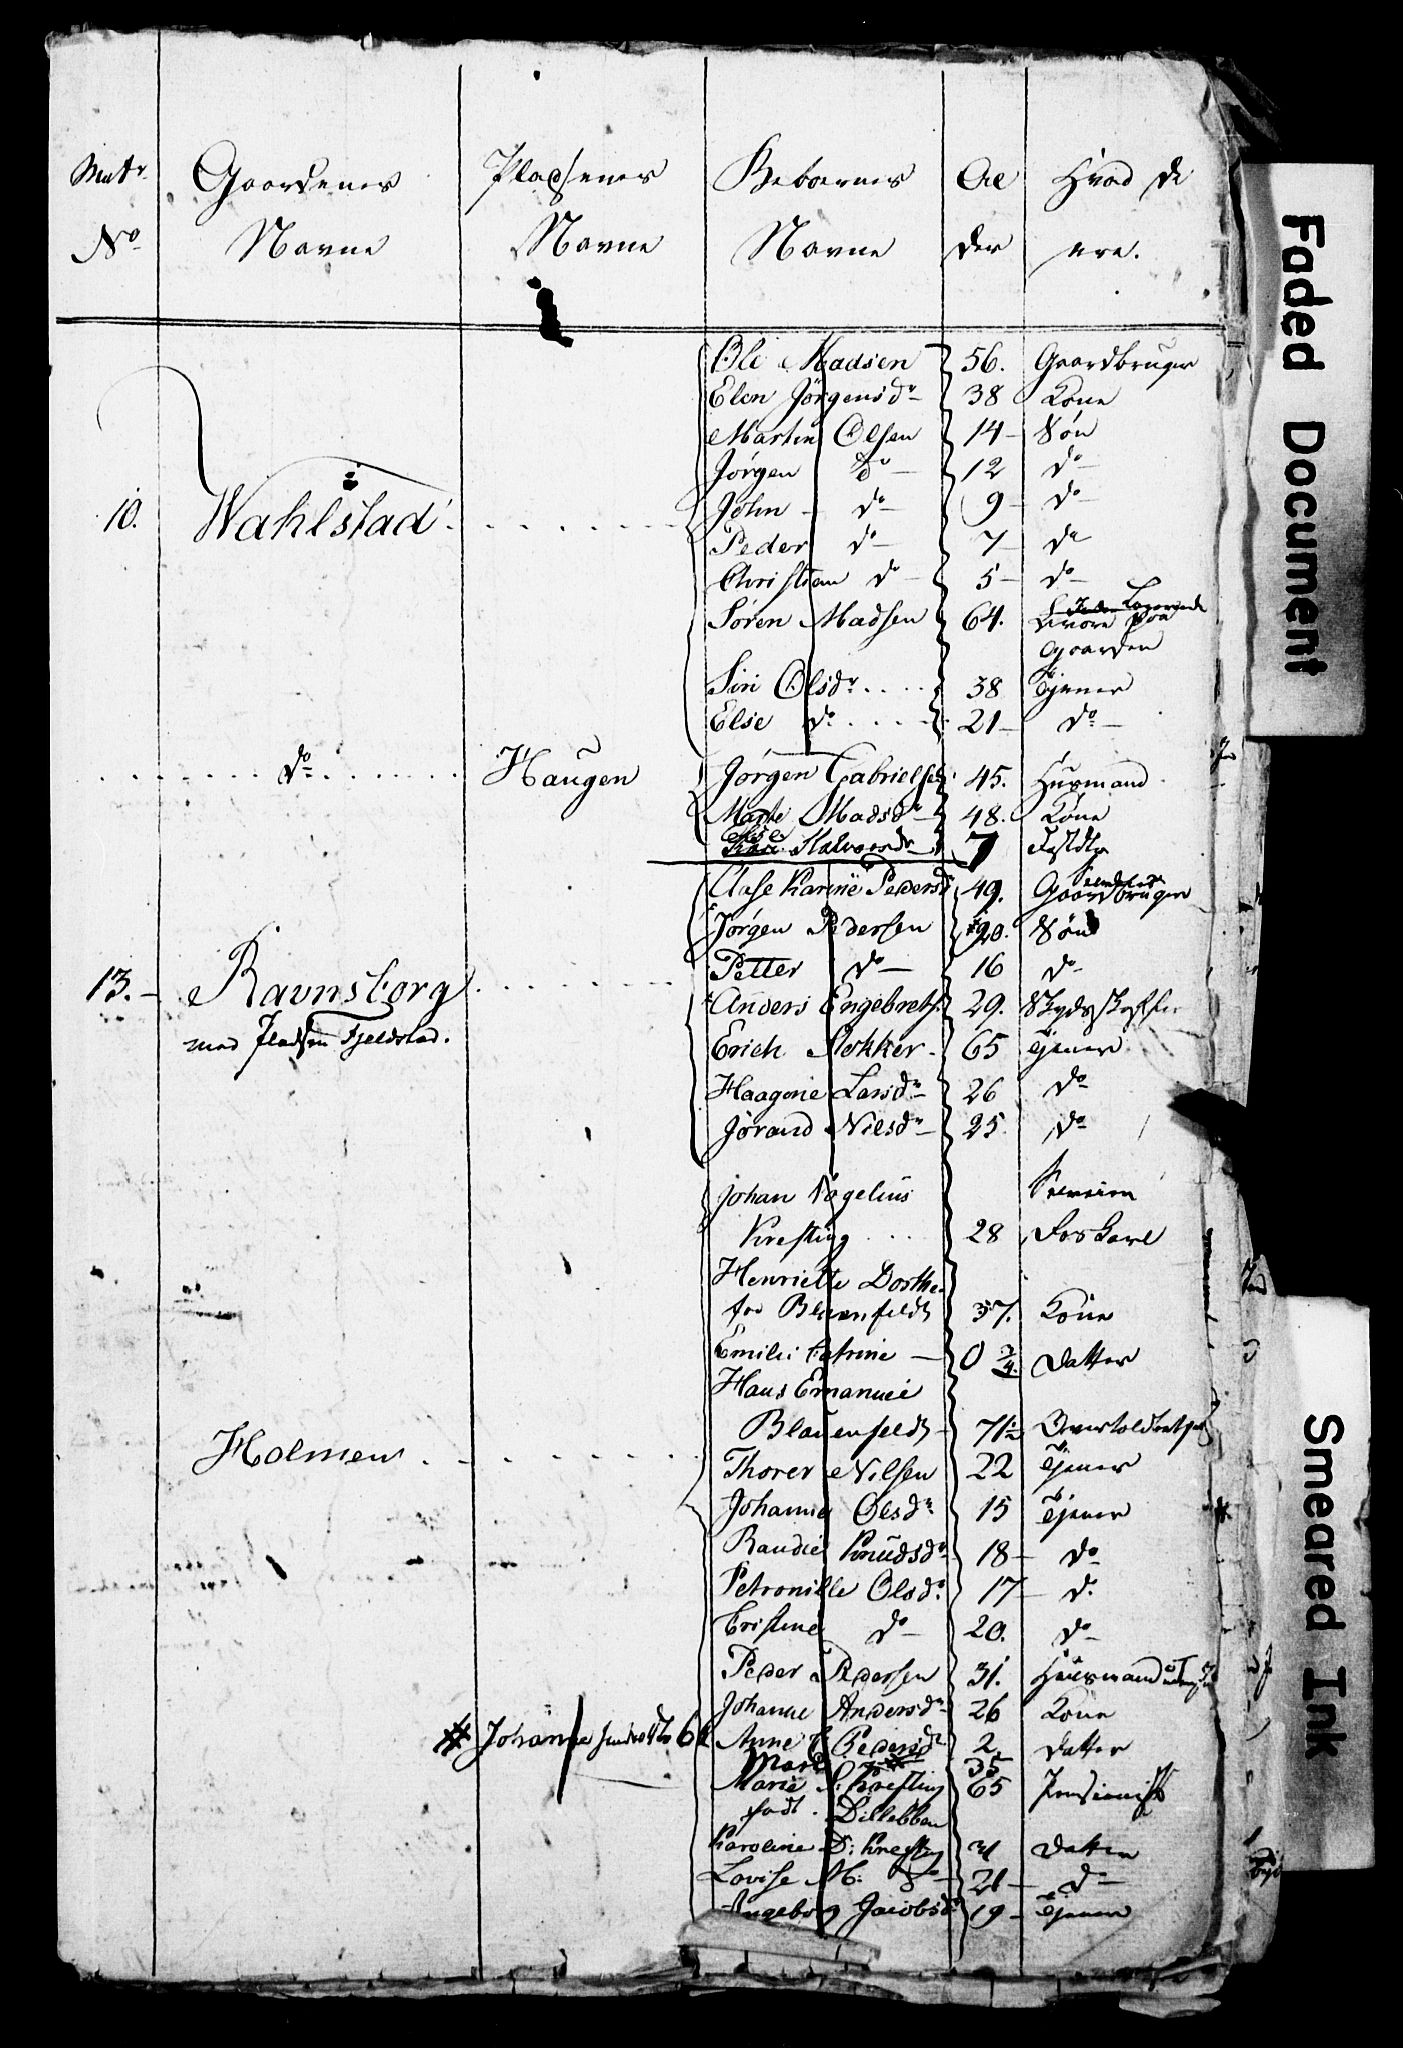 Matr. Gaardenes Pladsenes Beboernes Al Hvad de
No Navne Navne Navne der ere.
Ole Madsen 56. Gaardbruger
Elen Jörgensdr 38 Kone
Martin Olsen 14 Sön
Jörgen do 12 do
10. Wahlstad John do 9 do
Peder do 7 do
Christian do 5 do
Sören Madsen 64. paa
Gaarden
Siri Olsdr 38 Tjener
Else do 21 do
do Haugen Jörgen Gabrielsen 45. Huusmand
Marte Madsdr 48. Kone
Halvorsdr 7
Aase Karine Pedersdr 49. Gaardbruger
Jörgen Pedersen 20. Sön
Petter do 16 do
13. Ravnsborg Anders Engebrets. 29. Skydsskaffer
med Pladsen Fjeldstad. Erich Slokker 65 Tjener
Haagine Larsdr 26 do
Jörand Nilsdr 25 do
Johan
Krefting 28
Henriette Dorthe
Blauenfeldt 37. Kone
Emilie Catrine 0 3/4. Datter
Hans Emanuel
Blauenfeldt 71½
Holmen Thorer Nilsen 22 Tjener
Johanne Olsdr 15 Tjener
Randie Knudsdr 18 do
Petronille Olsdr 17 do
Cristine do 20. do
Peder Pedersen 31. Huusmand
Johanne Andersdr 26 Kone
# Johanne 6 Anne Pedersdr 2 Datter
35
Marie Krefting 65 Pensionist
födt
Karoline D: Krefting 31 Datter
Lovise M: do 21 do
Ingeborg Jacobsdr 19 Tjener
Faded Document
Smeared Ink